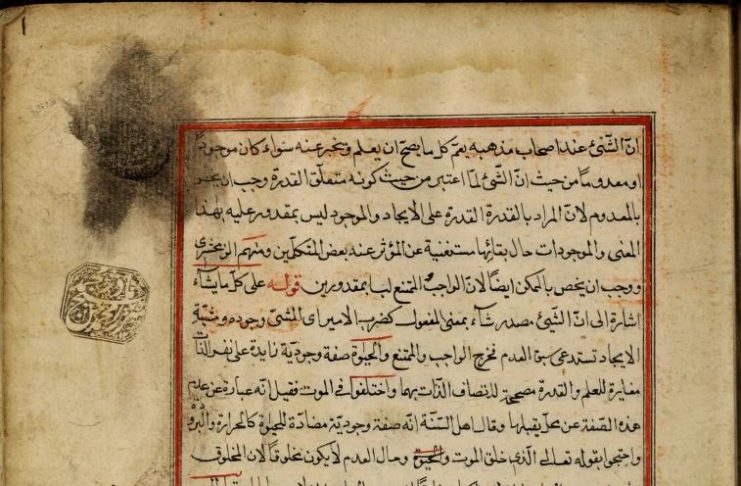 انّ الشّئ عند اصحاب مذهبه يعمّ كل ما يصحّ ان يعلم ويخبر عنه سواء كان موجودًا
او معدومًا من حيث انّ الشّئ لمّا اعتبر من حيث كونه متعلّق القدرة وجب ان
بالمعدوم لانّ المراد بالقدرة القدرة على الايجاد والموجود ليس بمقدور عليه بهذا
المعنى والموجودات حال بقائها مستغنية عن المؤثر عند بعض المتكلّمين ومنهم الزمخشرى
ووجب ان يخص بالممكن ايضًا لانّ الواجب والممتنع ليسا بمقدورين قوله على كلّ ما يشآء
اشارة الى انّ الشّئ مصدر شآء بمعنى المفعول كضرب الامير اى المشئ وجوده ومشيّة
الايجاد تستدعى سبق العدم فخرج الواجب والممتنع والحيوة صفة وجوديّة زايدة على نفس الذّات
مغايرة للعلم والقدرة مصحّحة لاتصاف الذّات بهما واختلفوا فى الموت فقيل انّه عبارة عن عدم
هذه الصّفة عن محلّ يقبلها وقال اهل السّنّة انّه صفة وجوديّة مضادّة للحيوة كالحرارة والبرو
واحتجوا بقوله تعالى الّذى خلق الموت والحيوة وحال العدم لا يكون مخلوقًا لان المخلوق